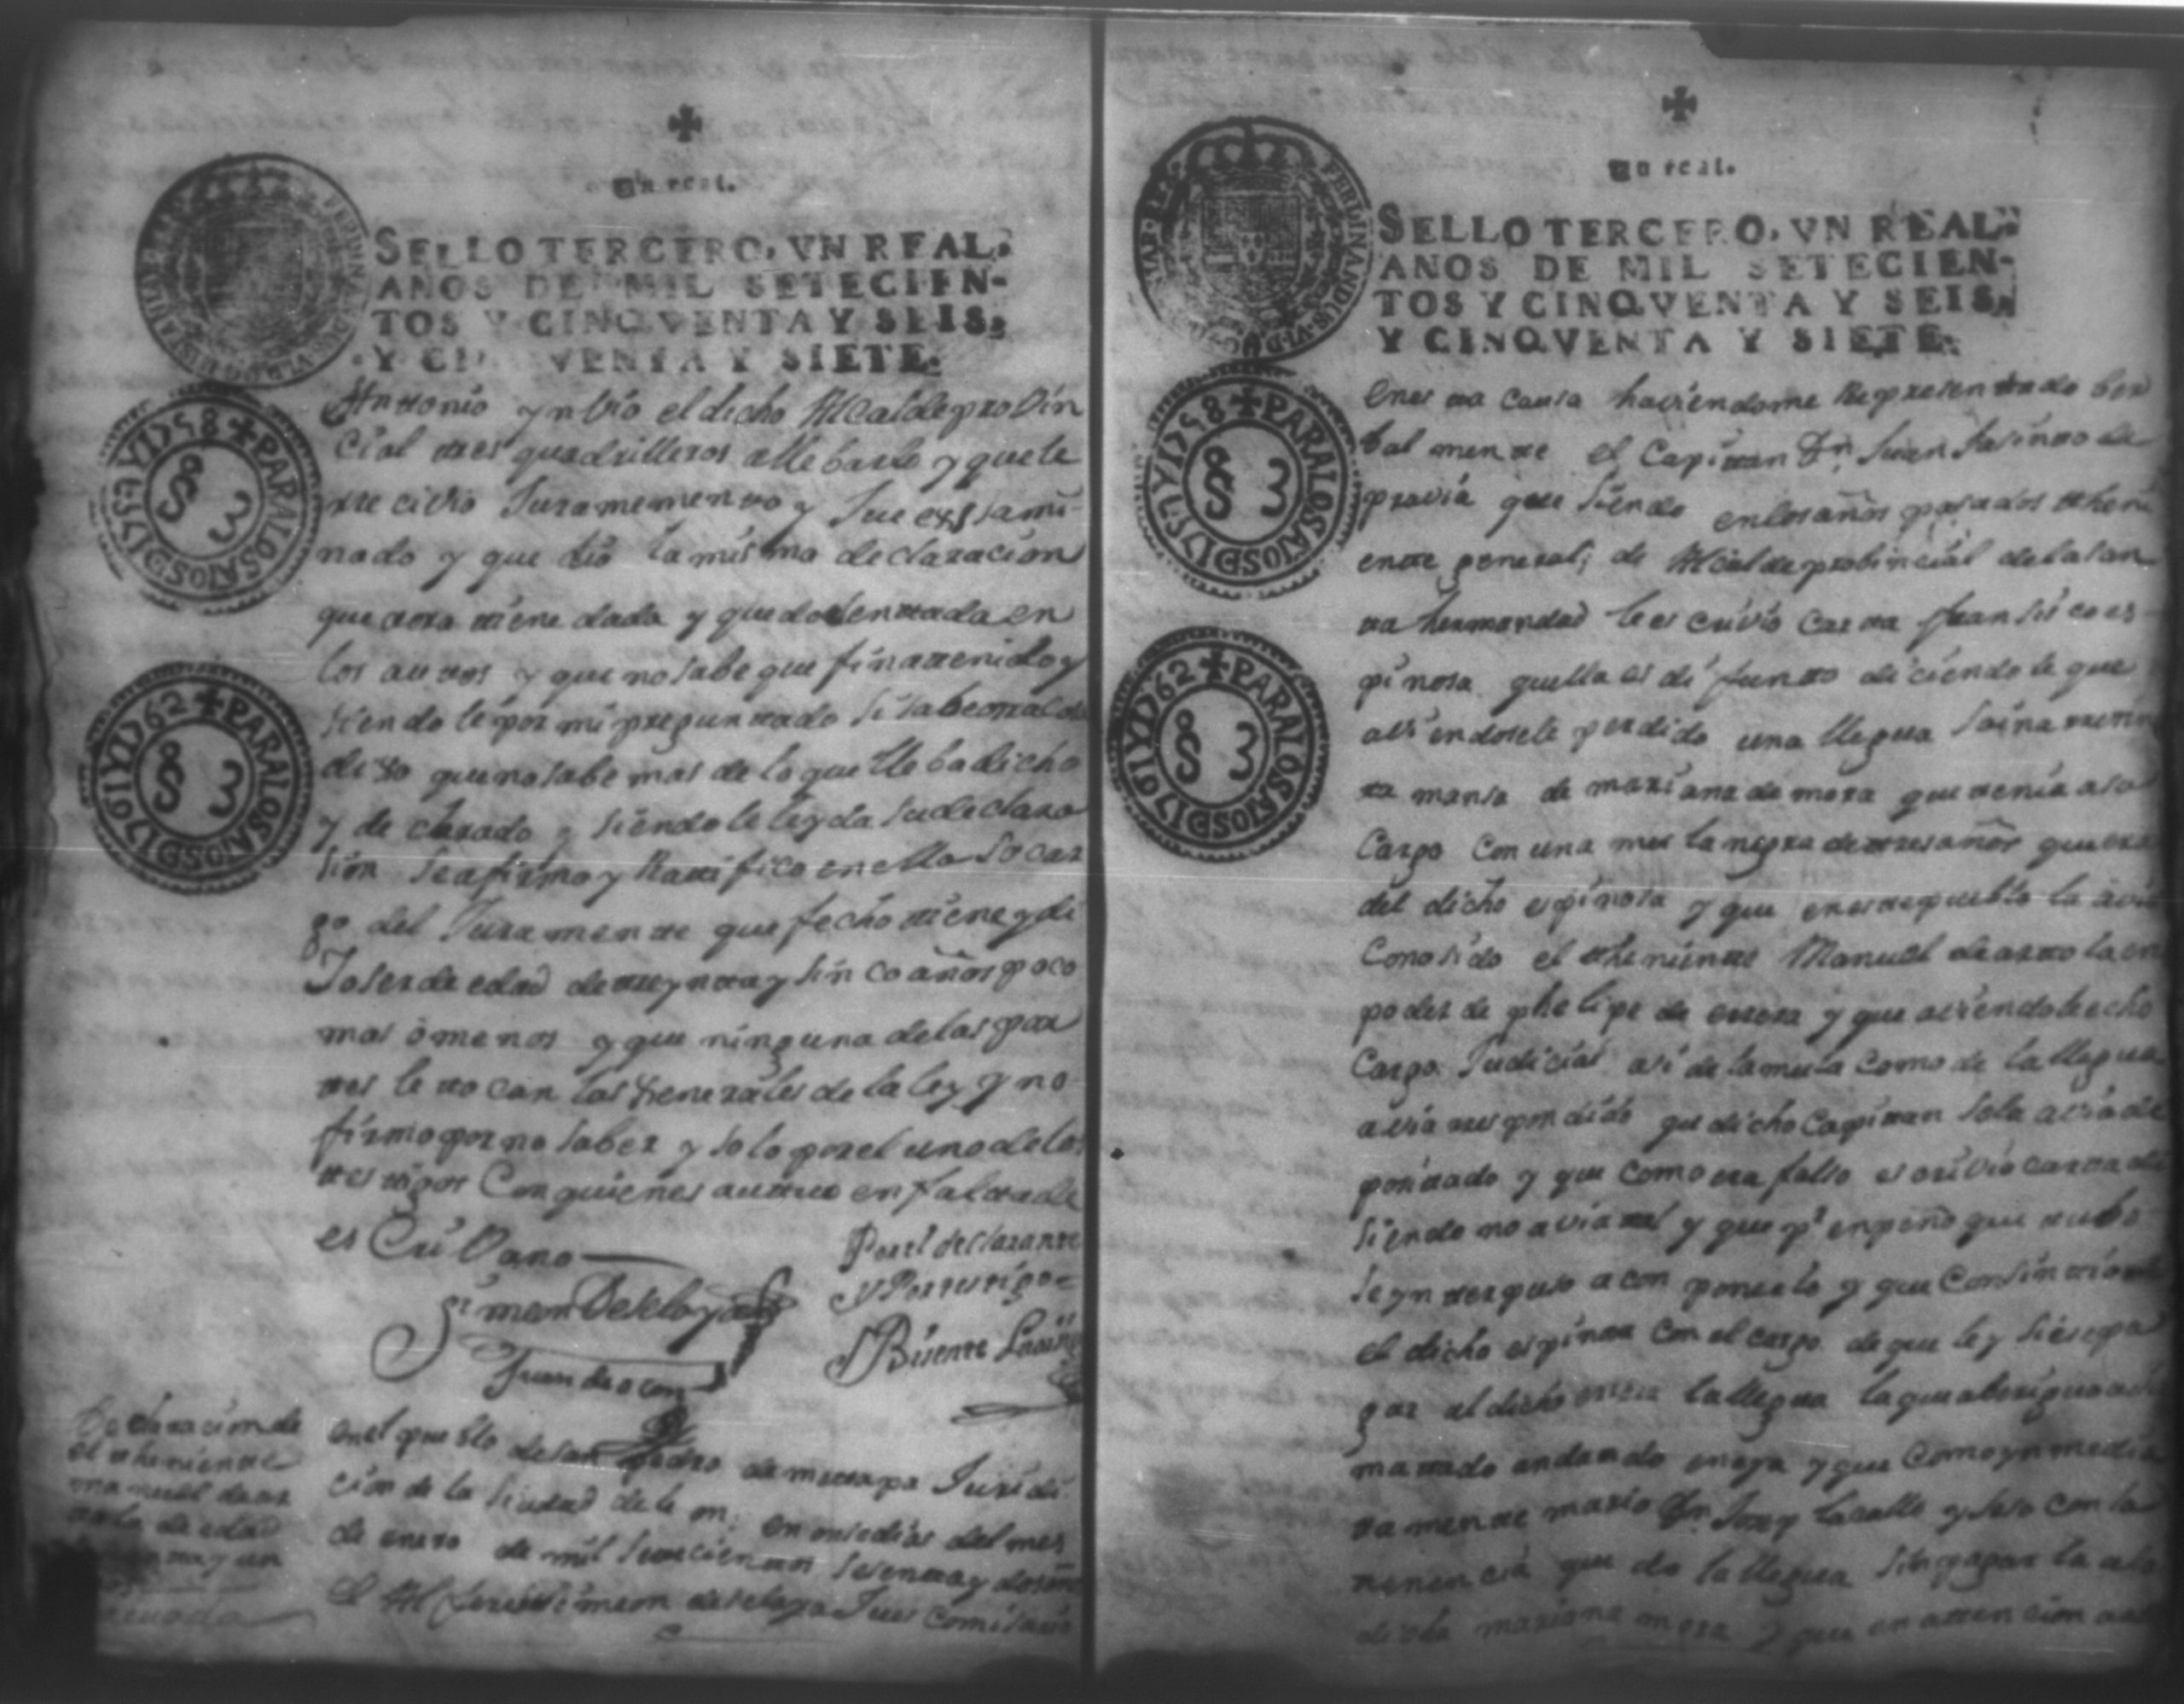 Un real.
SELLO TERCERO, VN REAL.
AÑOS DE MIL SETECIEN-
TOS Y CINQVENTA Y SEIS,
Y CINQVENTA Y SIETE.
PARA LOS AÑOS D 1757 Y 1758
§ 3
PARA LOS AÑOS D 1761 Y 1762
§ 3
Antonio ynbio el dicho Alcalde provin
cial tres quadrilleros a llebarle y que le
rrecivio Juramemento y fue exsami-
nado y que dio la misma declaracion
que tiene dada y queda en
los autos y que no sabe que fin a tenido y
siendole por mi preguntado si sabe
dixo que no sabe mas de lo que lleba dicho
y declarado y siendole leyda su declara
sion se afirmo y Ratifico en ella so car
go del Juramente que fecho tiene y di
Jo ser de edad de treynta y sinco años poco
mas o menos y que ninguna de las par
tes le tocan las generales de la ley y no
firmo por no saber y solo por el uno de los
testigos Con quienes autuo en falta de
esCrivano
Por el declarante
y Por testigo
Simeon de Selaya
Juan de ocon
Bisente
Declaracion de
el theniente
manuel de ar
tola de edad
en el pueblo de san Pedro de metapa Juridi
cion de la siudad de leon; en onse dias del mes
de enero de mil setecientos sesenta y dos
el Alferes simeon de selaya Jues Comisario
Un real.
SELLO TERCERO, VN REAL.
AÑOS DE MIL SETECIEN-
TOS Y CINQVENTA Y SEIS,
Y CINQVENTA Y SIETE.
FERDINANDUS VI D G
PARA LOS AÑOS D 1757 Y 1758
§ 3
PARA LOS AÑOS D 1761 Y 1762
§ 3
en esta causa haviendome Representado ber
bal mente el Capitan Dn Juan Jasinto de
pravia que siendo en los años pasados theni
ente general; de Alcalde probincial de la san
ta hermandad le escrivio carta fransisco es
pinosa quella es difunto diciendole que
aviendosele perdido una llegua saina
mansa de mariana de mora que tenia a su
Cargo con una mula negra de tres años que era
del dicho espinosa y que en este pueblo la avia
Conosido el theniente Manuel de artola en
poder de phelipe de errera y que aviendo hecho
Cargo Judicial asi de la mula como de la llegua
avia respondido que dicho Capitan se la avia de
positado y que como era falso escrivio carta di
siendo no avia tal y que pr enpeño que tubo
se ynterpuso a conponerlo y que Consintio
el dicho espinosa con el cargo de que le
gar al dicho errera la llegua la que
matado andando en eya y que Como ynmedia
tamente mario Dn y
nencia que de la llegua sin pagar la a la
dicha mariana mora y que en attencion a